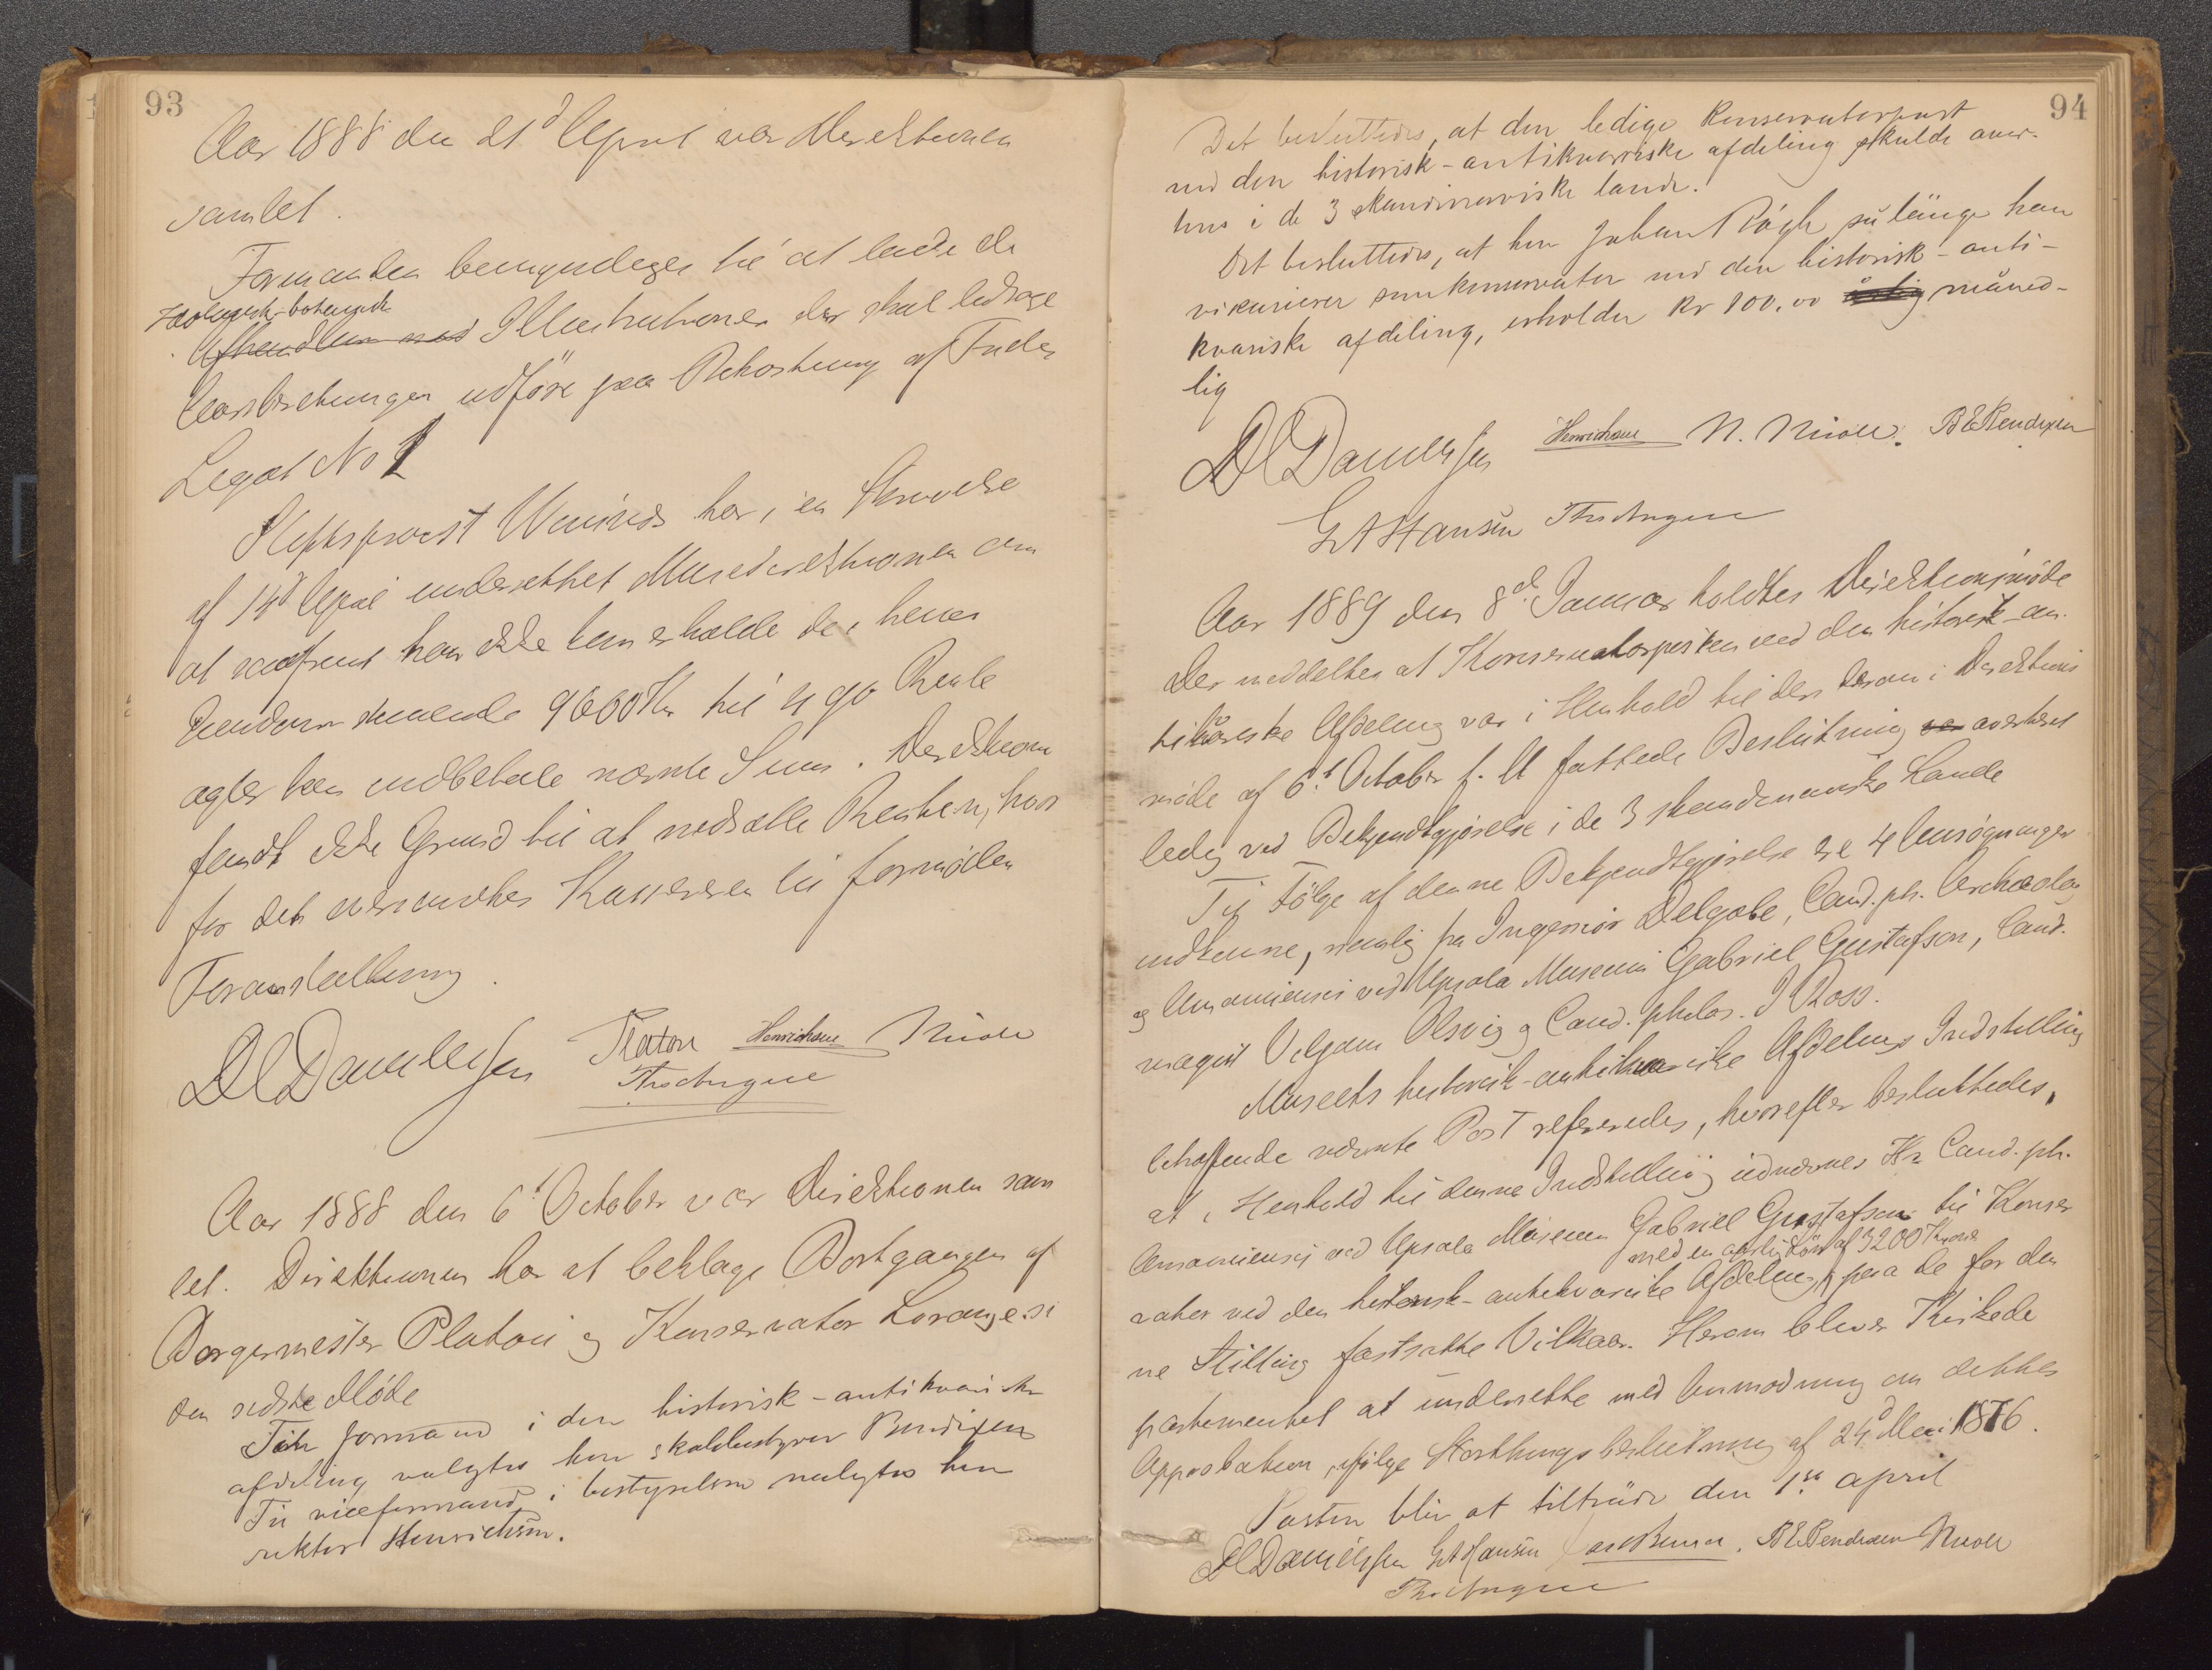 93
Aar 1888 den 21d April var Direktionen
samlet.
Formanden bemyndiges til at lade de
zoologisk-botanisk
Afhandlinger med Illustrationer der skal ledsage
Aarsberetningen udføre paa Bekostning af Fries
Legat No 1
Stiftsprovst Wernids har i en Skrivelse
af 14d April underrettet Museumsdirektionen om
at saafremt han ikke kan erholde de i hans
Eiendom staaende 9600 Kr til 4 % Rente
agter han indbetale nævnte Sum. Direktionen
fandt ikke Grund til at nedsætte Renten, hvor
for det overdrages Kassereren til fornøden
Foranstaltning.
D C Danielssen Platou Henrichsen Nicoll
Aar 1888 den 6t October var Direktionen sam
let. Direktionen har at beklage Bortgangen af
Borgermester Platou og Konservator Lorange si
den sidste Møde
Til formand i den historisk-antikvariske
afdeling valgtes herr skolebestyrer Bendixen
Til viceformand i bestyrelsen valgtes herr
rektor Henrichsen.
94
Det besluttedes, at den ledige konservatorpost
ved den historisk-antikvariske afdeling skulde aver-
teres i de 3 skandinaviske lande.
Det besluttedes, at herr Johan Rögh så länge han
vikarierer som konservator ved den historisk-anti-
kvariske afdeling, erholder kr 100.00 årlig måned-
lig
D C Danielssen Henrichsen N. Nicoll. B E Bendixen
G A Hansen
Aar 1889 den 8de Januar holdtes Direktionsmøde
Der meddeltes at Konservatorposten ved den historisk-an-
tikvariske Afdeling var i Henhold til den derom i Direktions
møde af 6t October f. A fattede Beslutning var averteret
ledig ved Bekjendtgjørelse i de 3 skandinaviske Lande
Til Følge af denne Bekjendtgjørelse ere 4 Ansøgninger
indkomne, nemlig fra Ingeniør Delgobe, Cand. ph. Archæolog
og Amanuensis ved Upsala Museum Gabriel Gustafson, Cand.
magist Viljam Olsvig og Cand. philos. J Ross.
Museets historisk-antikvariske Afdelings Indstilling
betræffende nævnte Post refereredes, hvorefter besluttedes,
at i Henhold til denne Indstilling udnævnes Hr Cand. ph.
Amanuensis ved Upsala Museum Gabriel Gustafson til Konser
med en aarlig Løn af 3200 Kroner
vator ved den historisk-antikvariske Afdeling paa de for den
ne Stilling fastsatte Vilkaar. Herom bliver Kirkede
partementet at underrette med Anmodning om dettes
Approbation, ifølge Storthingsbeslutning af 24d Mai 1876.
Posten blir at tilträde den 1ste april
D C Danielssen G A Hansen B E Bendixen Nicoll